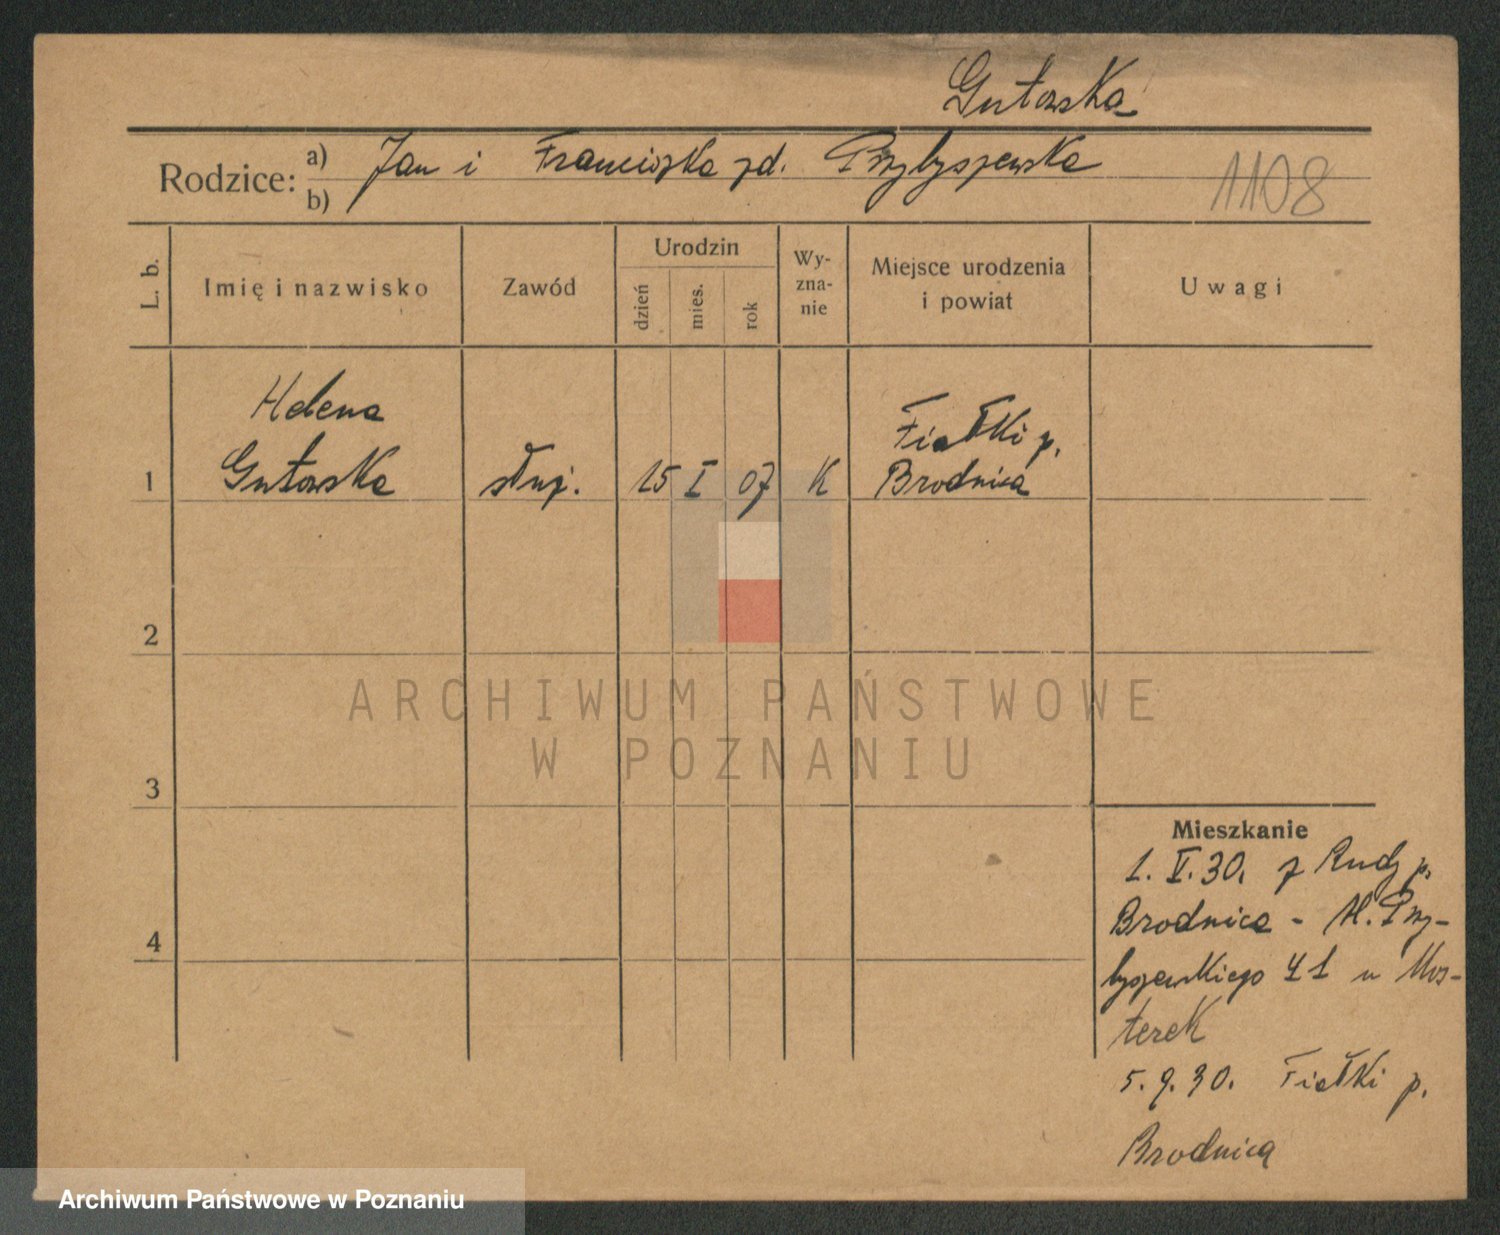 Gutowska
Rodzice: a) Jan i Franciszka zd. Przybyszewska
b)
1108
L. b.
Imię i nazwisko
Zawód
Urodzin
dzień
mies.
rok
Wy-
zna-
nie
Miejsce urodzenia
i powiat
Uwagi
Helena
Fiałki p.
1 Gutowska służ. 15 I 07 K Brodnica
2
ARCHIWUM PAŃSTWOWE
W POZNANIU
3
Mieszkanie
1. V. 30. z Rudy p.
Brodnica - Przy-
4
byszewskiego 41 u Mos-
terek
5. 9. 30. Fiałki p.
Brodnica
Archiwum Państwowe w Poznaniu